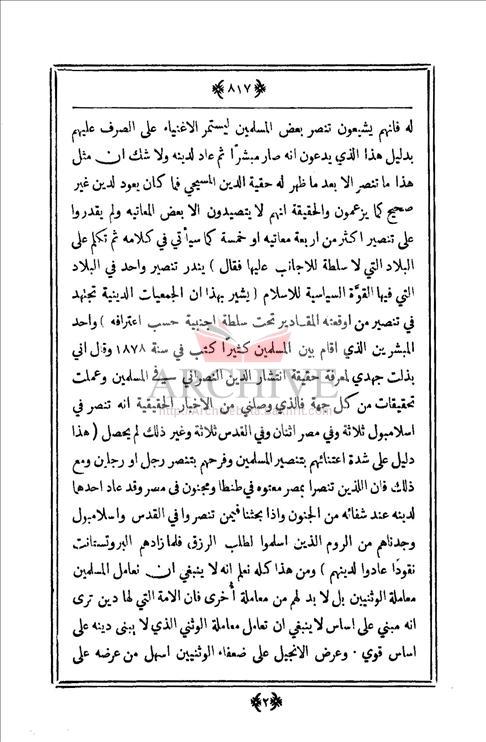 ﴿٨١٧﴾
له فانهم يشيعون تنصر بعض المسلمين ليستمر الاغنياء على الصرف عليهم
بدليل هذا الذي يدعون انه صار مبشرًا ثم عاد لدينه ولا شك ان مثل
هذا ما تنصر الا بعد ما ظهر له حقية الدين المسيحي فما كان يعود لدين غير
صحيح كما يزعمون والحقيقة انهم لا يتصيدون الا بعض المعاتيه ولم يقدروا
على تنصير اكثر من اربعة معاتيه او خمسة كما سيأتي في كلامه ثم تكلم على
البلاد التي لا سلطة للاجانب عليها فقال ) يندر تنصير واحد في البلاد
التي فيها القوَّة السياسية للاسلام ( يشير بهذا ان الجمعيات الدينية تجتهد
في تنصير من اوقعته المقادير تحت سلطة اجنبية حسب اعترافه ) واحد
المبشرين الذي اقام بين المسلمين كثيرًا كتب في سنة ١٨٧٨ وقال اني
بذلت جهدي لمعرفة حقيقة انتشار الدين النصراني في المسلمين وعملت
تحقيقات من كل جهة فالذي وصلني من الاخبار الحقيقية انه تنصر في
اسلامبول ثلاثة وفي مصر اثنان وفي القدس ثلاثة وغير ذلك لم يحصل ( هذا
دليل على شدة اعتنائهم بتنصير المسلمين وفرحهم بتنصر رجل او رجلين ومع
ذلك فان اللذين تنصرا بمصر معتوه في طنطا ومجنون فى مصر وقد عاد احدها
لدينه عند شفائه من الجنون واذا بحثنا فيمن تنصروا في القدس واسلامبول
وجدناهم من الروم الذين اسلموا لطلب الرزق فلما زادهم البروتستانت
نقودًا عادوا لدينهم ) ومن هذا كله نعلم انه لا ينبغي ان نعامل المسلمين
معاملة الوثنيين بل لا بد لهم من معاملة أُخرى فان الامة التي لها دين ترى
انه مبني على اساس لا ينبغي ان تعامل معاملة الوثني الذي لا يبنى دينه على
اساس قوي . وعرض الانجيل على ضعفاء الوثنيين اسهل من عرضه على
﴿٢﴾
ARCHIVE